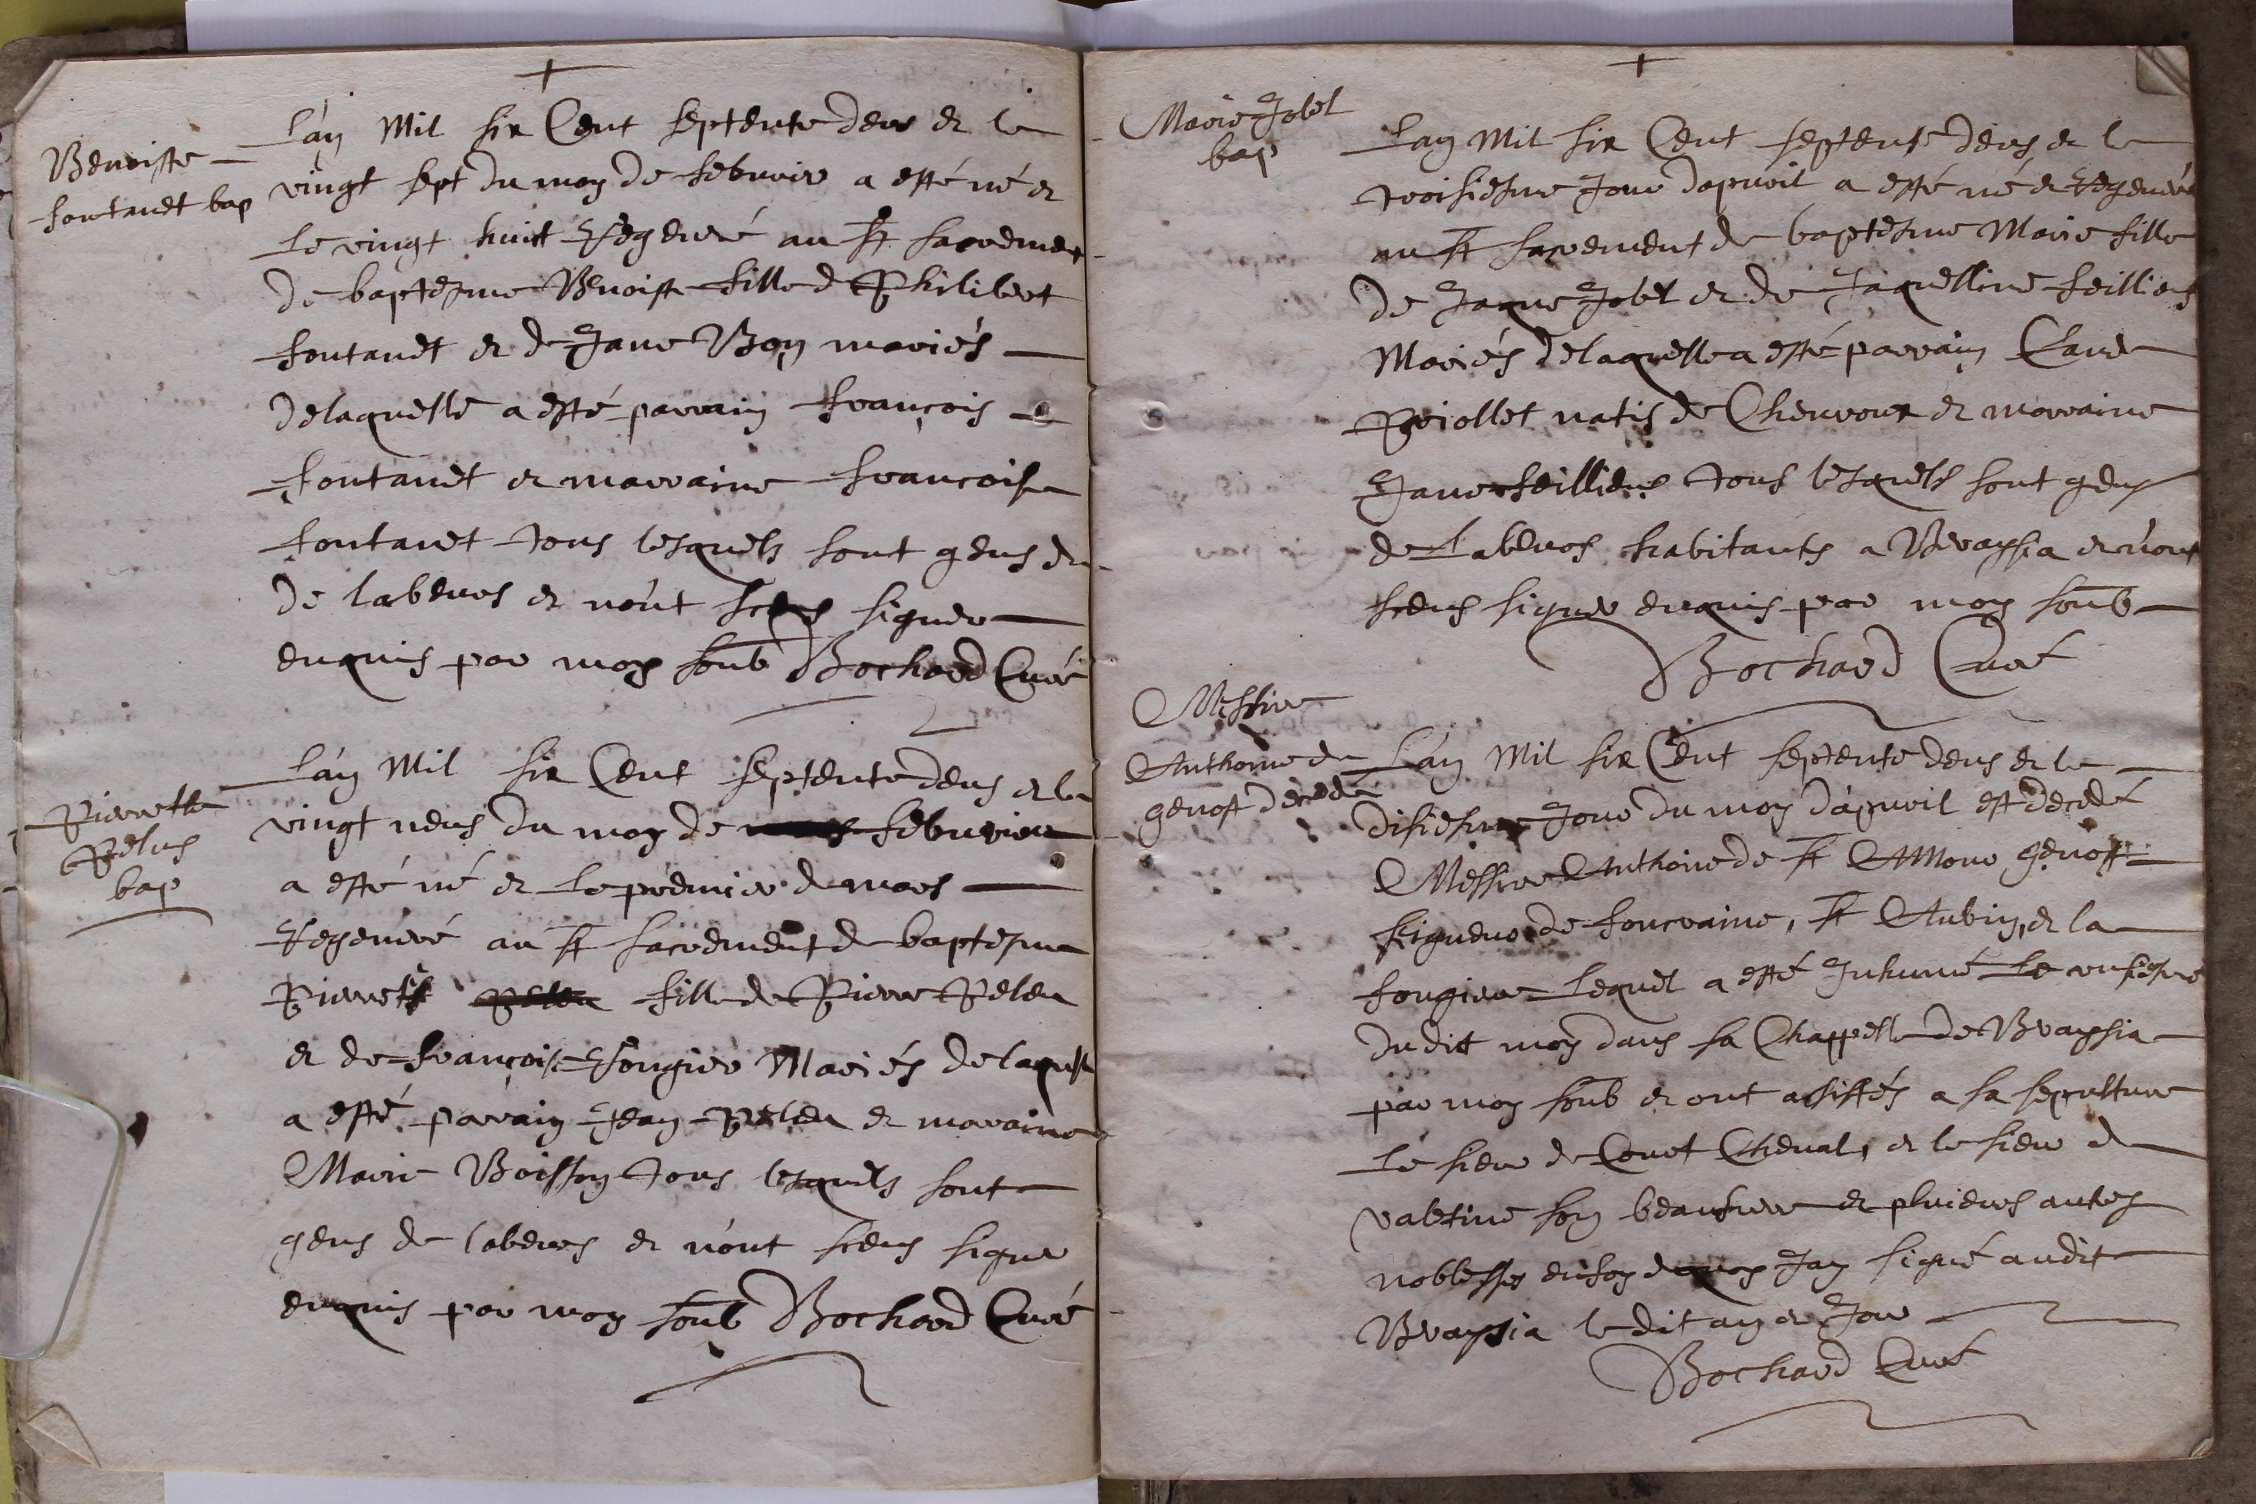 Benoiste
fontanet bap
L'an Mil six Cent septente deux et le
vingt sept du moy de febvrier a esté né et
le vingt huict Regeneré au st sacrement
de baptesme Benoiste fille de Philibert
fontanet et de Jane Bon mariés
delaquelle a esté parrain françois
fontanet et marraine francoise
fontanet tous lesquels sont gens de
de labeurs et n'ont sceus signer
enquis par moy soub Bochard Curé
Pierrette
Peleus
bap
L'an Mil six Cent septente deus et le
vingt neus du moy de febvrier
a esté né et le premier de mars
Regeneré au st sacrement de baptesme
Pierrette fille de Pierre Peleu
et de françoise fougier Mariés delaquelle
a esté parain Jean Peleu et maraine
Marie Boisson tous lesquels sont
gens de labeurs et n'ont sceus signer
enquis par moy soub Bochard Curé
Marie Jobet
bap
L'an Mil six Cent septente deus et le
troisiesme Jour dapvril a esté né et Regeneré
au st sacrement de baptesme Marie fille
de Jaque Jobet et de Jaquelline feilliens
Mariés delaquelle a esté parrain Claude
Priollet natif de Chevroux et marraine
Jane feilliens tous lesquels sont gens
de Labeurs habitants a Bvayssia et n'ont
sceus signer enquis par moy soub
Bochard Curé
Messire
Anthoine de
genost decedé
L'an Mil six Cent septente deus et le
disiesme Jour du moy d'apvril est decedé
Messire Anthoine de st Amour genost
signeur de foncraine, st Aubin, et la
fougiere lequel a esté Inhumé le onsiesme
dudit moy dans sa Chappelle de Bvayssia
par moy soub et ont assistés a sa sepulture
le sieur de Conet Cheval, et le sieur de
valetine son beaufrere et plusieurs autes
noblesses en foy dequoy Jay signé audit
Bvayssia le dit an et Jour
Bochard Curé